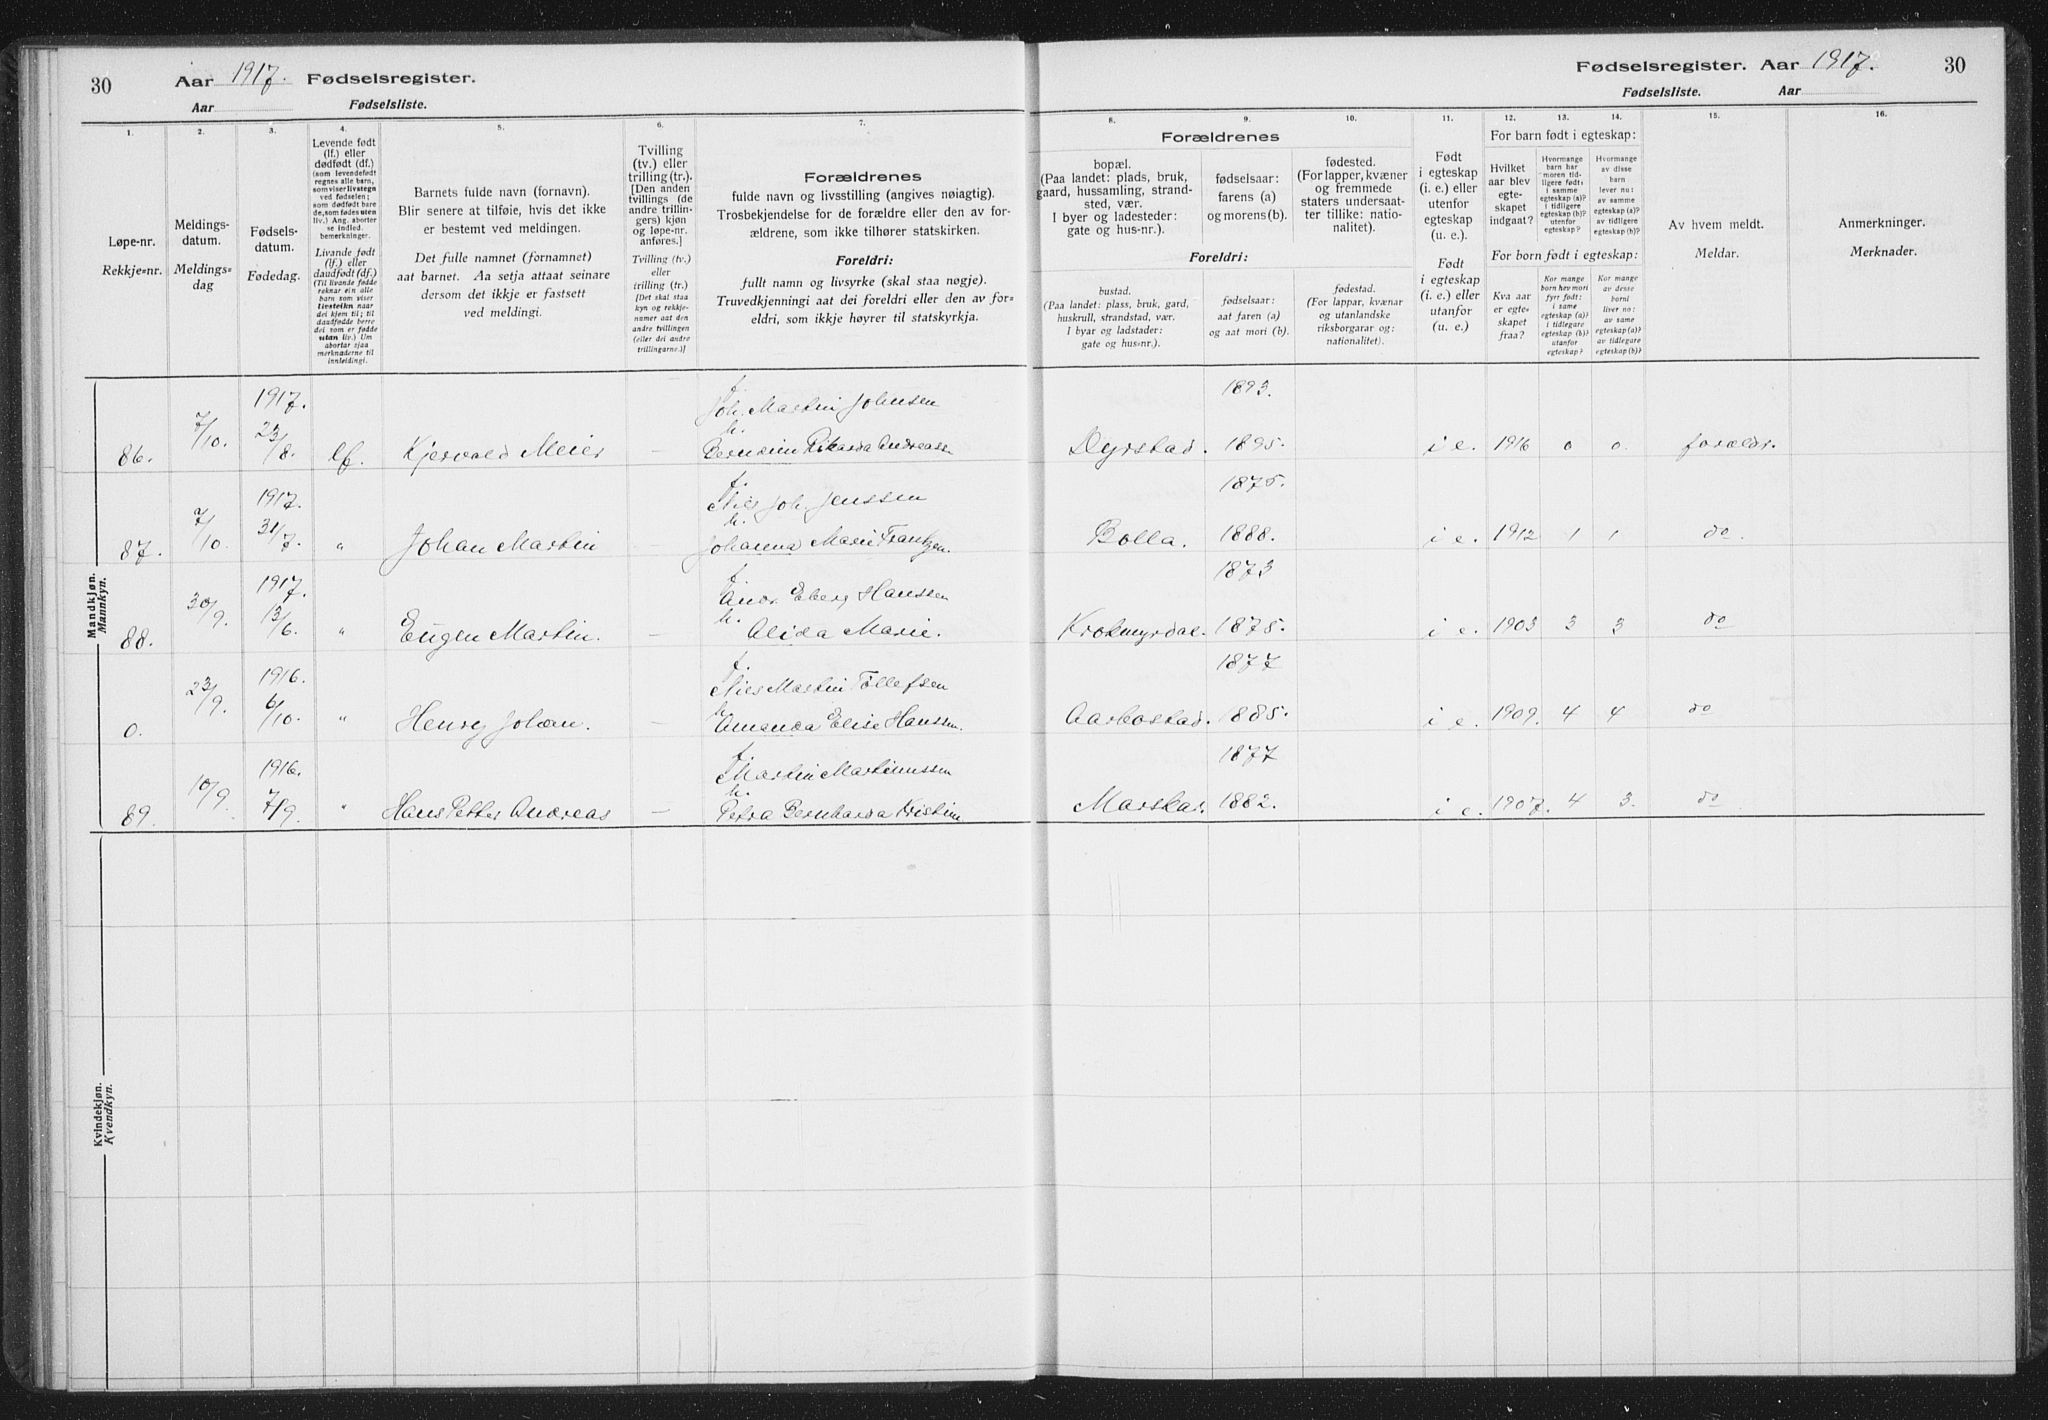 30
Aar 1917. Fødselsregister.
Aar Fødselsliste.
1.
2.
3.
4.
5.
6.
7.
Løpe-nr.
Rekkje=nr.
Meldings-
datum.
Meldings=
dag
Fødsels-
datum.
Fødedag.
Levende født
(lf.) eller
dødfødt (df.)
(som levendefødt
regnes alle barn,
som viser livstegn
ved fødselen;
som dødfødt bare
de, som fødes uten
liv.) Ang. aborter
se indled.
bemerkninger.
Livande født
(lf.) eller
daudfødt (df.)
(Til livande fødde
reknar ein alle
barn som viser
livsteikn naar
dei kjem til; til
daudfødde berre
dei som er fødde
utan liv.) Um
abortar sjaa
merknaderne til
innleidingi.
Barnets fulde navn (fornavn).
Blir senere at tilføie, hvis det ikke
er bestemt ved meldingen.
Det fulle namnet (fornamnet)
aat barnet. Aa setja attaat seinare
dersom det ikkje er fastsett
ved meldingi.
Tvilling
(tv.) eller
trilling (tr.).
[Den anden
tvillings (de
andre trillin-
gers) kjøn
og løpe-nr.
anføres.]
Tvilling (tv.)
eller
trilling (tr.)
[Det skal staa
kyn og rekkje-
numer aat den
andre tvillingen
(eller dei andre
trillingarne.)]
Forældrenes
fulde navn og livsstilling (angives nøiagtig).
Trosbekjendelse for de forældre eller den av for-
ældrene, som ikke tilhører statskirken.
Foreldri:
fullt namn og livsyrke (skal staa nøgje).
Truvedkjenningi aat dei foreldri eller den av for=
eldri, som ikkje høyrer til statskyrkja.
Mandkjøn.
Mannkyn.
86. 7/10. 1917. 23/8. lf. Kjervald Meier — f. Joh. Martin Johnsen
h. Berndine Rikarda Andreassn
87. 7/10. 1917. 31/7. " Johan Martin — f. Nils Joh. Jenssen
h. Johanna Marie Frantzen.
88. 30/9. 1917. 13/6. " Eugen Martin. — f. Andr. Eberg Hanssen
h. Alida Marie.
0. 23/9. 1916. 6/10. " Henry Johan. — f. Nils Martin Tollefsen
h. Amanda Elise Hanssen.
89. 10/9. 1916. 7/9. " Hans Petter Andreas — f. Martin Martinussen
h. Petra Bernharda Kristine
Kvindekjøn.
Kvendkyn.
Fødselsregister. Aar 1917. 30
Fødselsliste. Aar
8.
9.
10.
11.
12.
13.
14.
15.
16.
Forældrenes
bopæl.
(Paa landet: plads, bruk,
gaard, hussamling, strand-
sted, vær.
I byer og ladesteder:
gate og hus-nr.).
fødselsaar:
farens (a)
og morens (b).
fødested.
(For lapper, kvæner
og fremmede
staters undersaat-
ter tillike: natio-
nalitet).
Foreldri:
bustad.
(Paa landet: plass, bruk, gard,
huskrull, strandstad, vær.
I byar og ladstader:
gate og hus-nr.).
fødselsaar:
aat faren (a)
og aat mori (b)
fødestad.
(For lappar, kvænar
og utanlandske
riksborgarar og:
nationalitet).
Født
i egteskap
(i. e.) eller
utenfor
egteskap
(u. e.).
Født
i egteskap
(i. e.) eller
utanfor
(u. e.)
For barn født i egteskap:
Hvilket
aar blev
egte-
skapet
indgaat?
Hvormange
barn har
moren tid-
ligere født:
i samme
egteskap (a)?
i tidligere
egteskap (b)?
utenfor
egteskap?
Hvormange
av disse
barn
lever nu:
av samme
egteskap (a)?
av tidligere
egteskap (b)?
For born født i egteskap:
Kva aar
er egte-
skapet
fraa?
Kor mange
born hev mori
fyrr født:
i same
egteskap (a)?
i tidlegare
egteskap (b)?
utanfor
egteskap?
Kor mange
av desse
borni
liver no:
av same
egteskap (a)?
av tidlegare
egteskap (b)?
Av hvem meldt.
Meldar.
Anmerkninger.
Merknader.
1893.
Dyrstad. 1895. i e. 1916 0 0. foreldr.
1875.
Bolla. 1888. i e. 1912 1 1 do.
1873
Krokmyrdal. 1875. i e. 1903 3 3 do
1877
Aarbostad. 1885. i e. 1909. 4 4 do
1877
Marstad. 1882. i e. 1907. 4 3. do